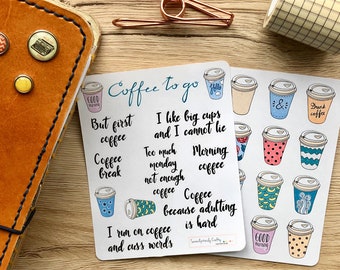 Coffee to go
GOOD
MORNING
Hello
But first
coffee
I like big cups
and I cannot lie
Coffee
break
Too much
monday
not enough
coffee
Morning
coffee
Coffee
because adulting
is hard
I run on coffee
and cuss words
&
Drink
coffee
GOOD
MORNING